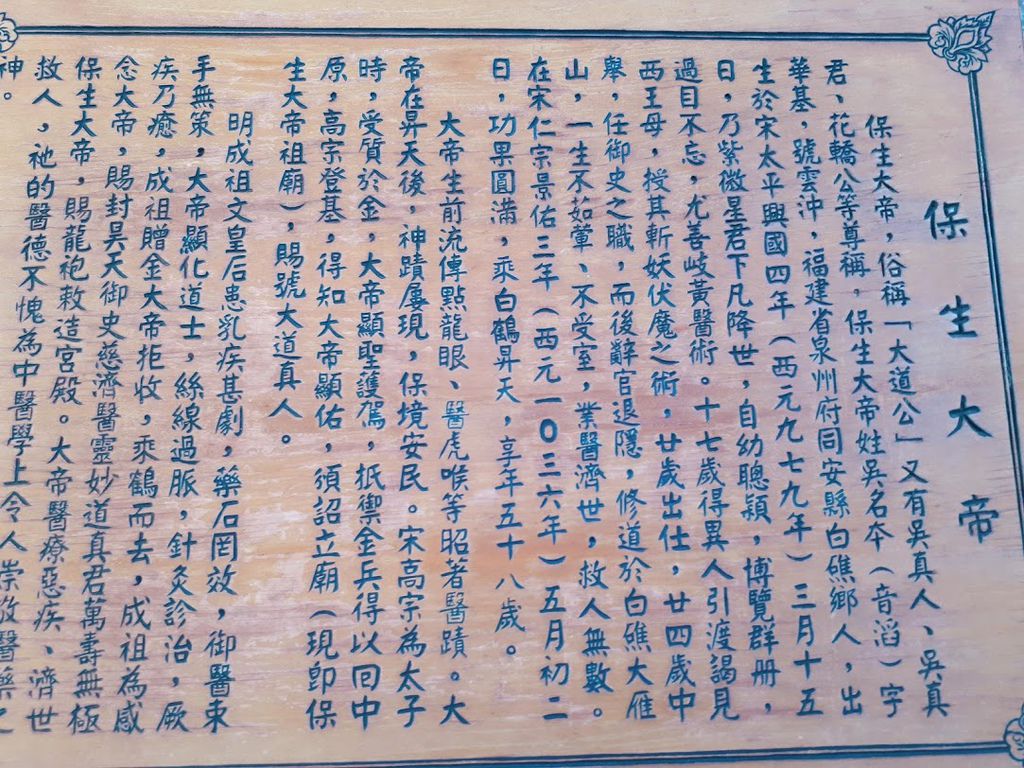 保生大帝
保生大帝，俗稱「大道公」又有吳真人、吳真
君、花轎公等尊稱。保生大帝姓吳名夲（音滔）字
華基，號雲沖，福建省泉州府同安縣白鵻鄉人，出
生於宋太平興國四年（西元九七九年）三月十五
日，乃紫微星君下凡降世，自幼聰穎，博覽群冊，
過目不忘，尤善岐黃醫術。十七歲得異人引渡謁見
西王母，授其斬妖伏魔之術，廿歲出仕，廿四歲中
舉，任御史之職，而後辭官退隱，修道於白礁大雁
山，一生不茹葷、不受室，業醫濟世，救人無數。
在宋仁宗景佑三年（西元一０三六年）五月初二
日，功果圓滿，乘白鶴昇天，享年五十八歲。
大帝生前流傳點龍眼、醫虎喉等昭著醫蹟。大
帝在昇天後，神蹟屢現，保境安民。宋高宗為太子
時，受質於金，大帝顯聖護駕，抵禦金兵得以回中
原，高宗登基，得知大帝顯佑，須詔立廟（現即保
生大帝祖廟），賜號大道真人。
明成祖文皇后患乳疾甚劇，藥石罔效，御醫束
手無策，大帝顯化道士，絲線過脈，針灸診治，厥
疾乃癒，成祖贈金大帝拒收，乘鶴而去，成祖為感
念大帝，賜封昊天御史慈濟醫靈妙道真君萬壽無極
保生大帝，賜龍袍敕造宮殿。大帝醫療惡疾、濟世
救人，祂的醫德不愧為中醫學上令人崇敬醫藥之
神。